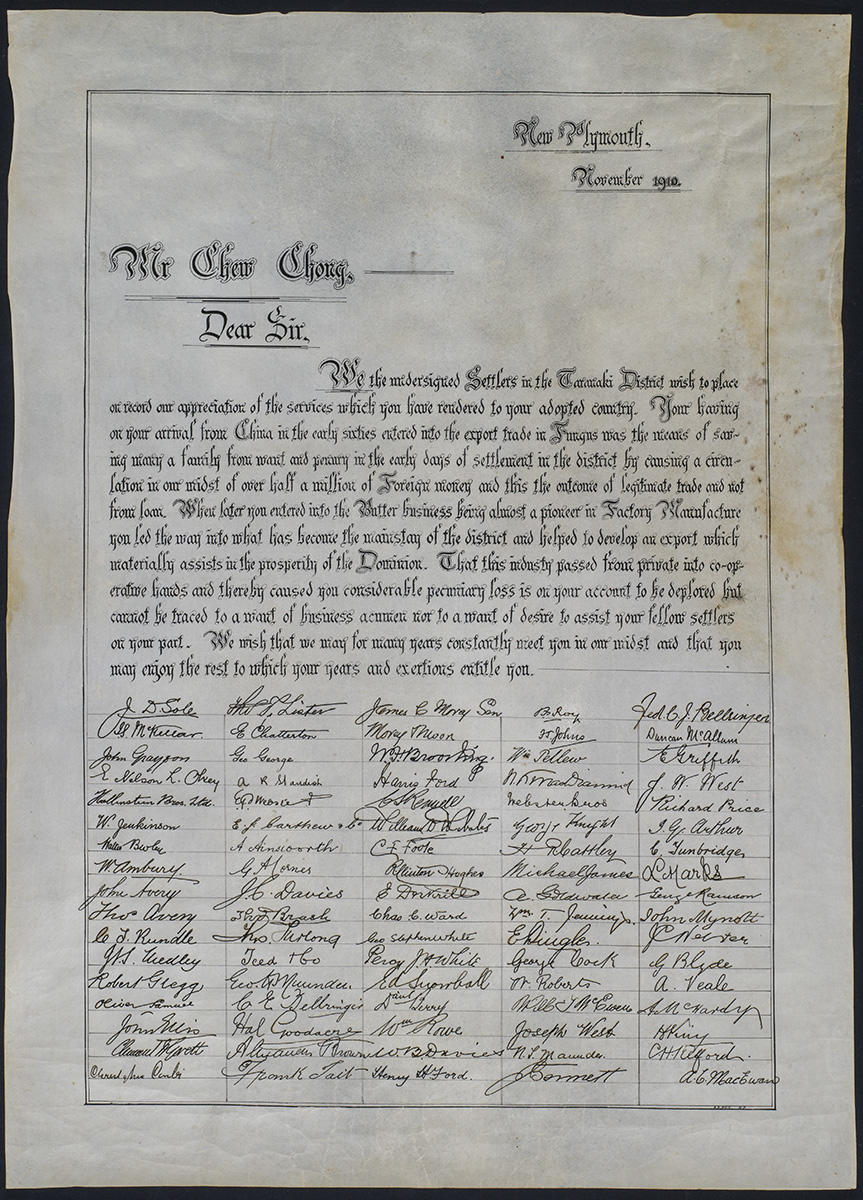 New Plymouth.
November 1910.
Mr Chew Chong,
Dear Sir.
We the undersigned Settlers in the Taranaki District wish to place
on record our appreciation of the services which you have rendered to your adopted country. Your having
on your arrival from China in the early sixties entered into the export trade in Fungus was the means of sav-
ing many a family from want and penury in the early days of settlement in the district by causing a circu-
lation in our midst of over half a million of Foreign money and this the outcome of legitimate trade and not
from loan. When later you entered into the Butter business being almost a pioneer in Factory Manufacture
you led the way into what has become the mainstay of the district and helped to develop an export which
materially assists in the prosperity of the Dominion. That this industy passed from private into co-op-
erative hands and thereby caused you considerable pecuniary loss is on your account to be deplored but
cannot be traced to a want of business acumen nor to a want of desire to assist your fellow settlers
on your part. We wish that we may for many years constantly meet you in our midst and that you
may enjoy the rest to which your years and exertions entitle you.
J D Sole James C Moray Sen B. Roy Fred. C. J. Bellringer
McKellar E Chatterton H Johns Duncan McAllum
John Grayson Geo George Wm Pellew Griffith
E Nelson L. A R Standish Harris Ford J. W. West
Hallenstein Bros. Ltd. Webster Bros Richard Price
W. Jenkinson E. L. Carthew & Co Geo Knight J. G. Arthur
A Ainsworth C F Foote H R Cattley C. Tunbridge
W. Ambury G A Cornes Hughes Michael James L Marks
John Avery J. C. Davies E Dockrill A Goldwater George Ramson
Thos Avery Thos Brash Chas C. Ward Wm T. Jennings John Mynott
C T Rundle Thos Furlong Geo Stephen White E Dingle J C Webster
Medley Teed & Co Percy J H White George Cock G Blyde
Robert Clegg Geo Maunder Ed Snowball W. Roberts A. Veale
Oliver Samuel C E Bellringer Berry McEwen A McHardy
John Hal Goodacre Wm Rowe Joseph West H King
Alexander Brown W B Davies N. L. Maunder
Frank Tait Henry H Ford. J Bennett A. C. MacEwan